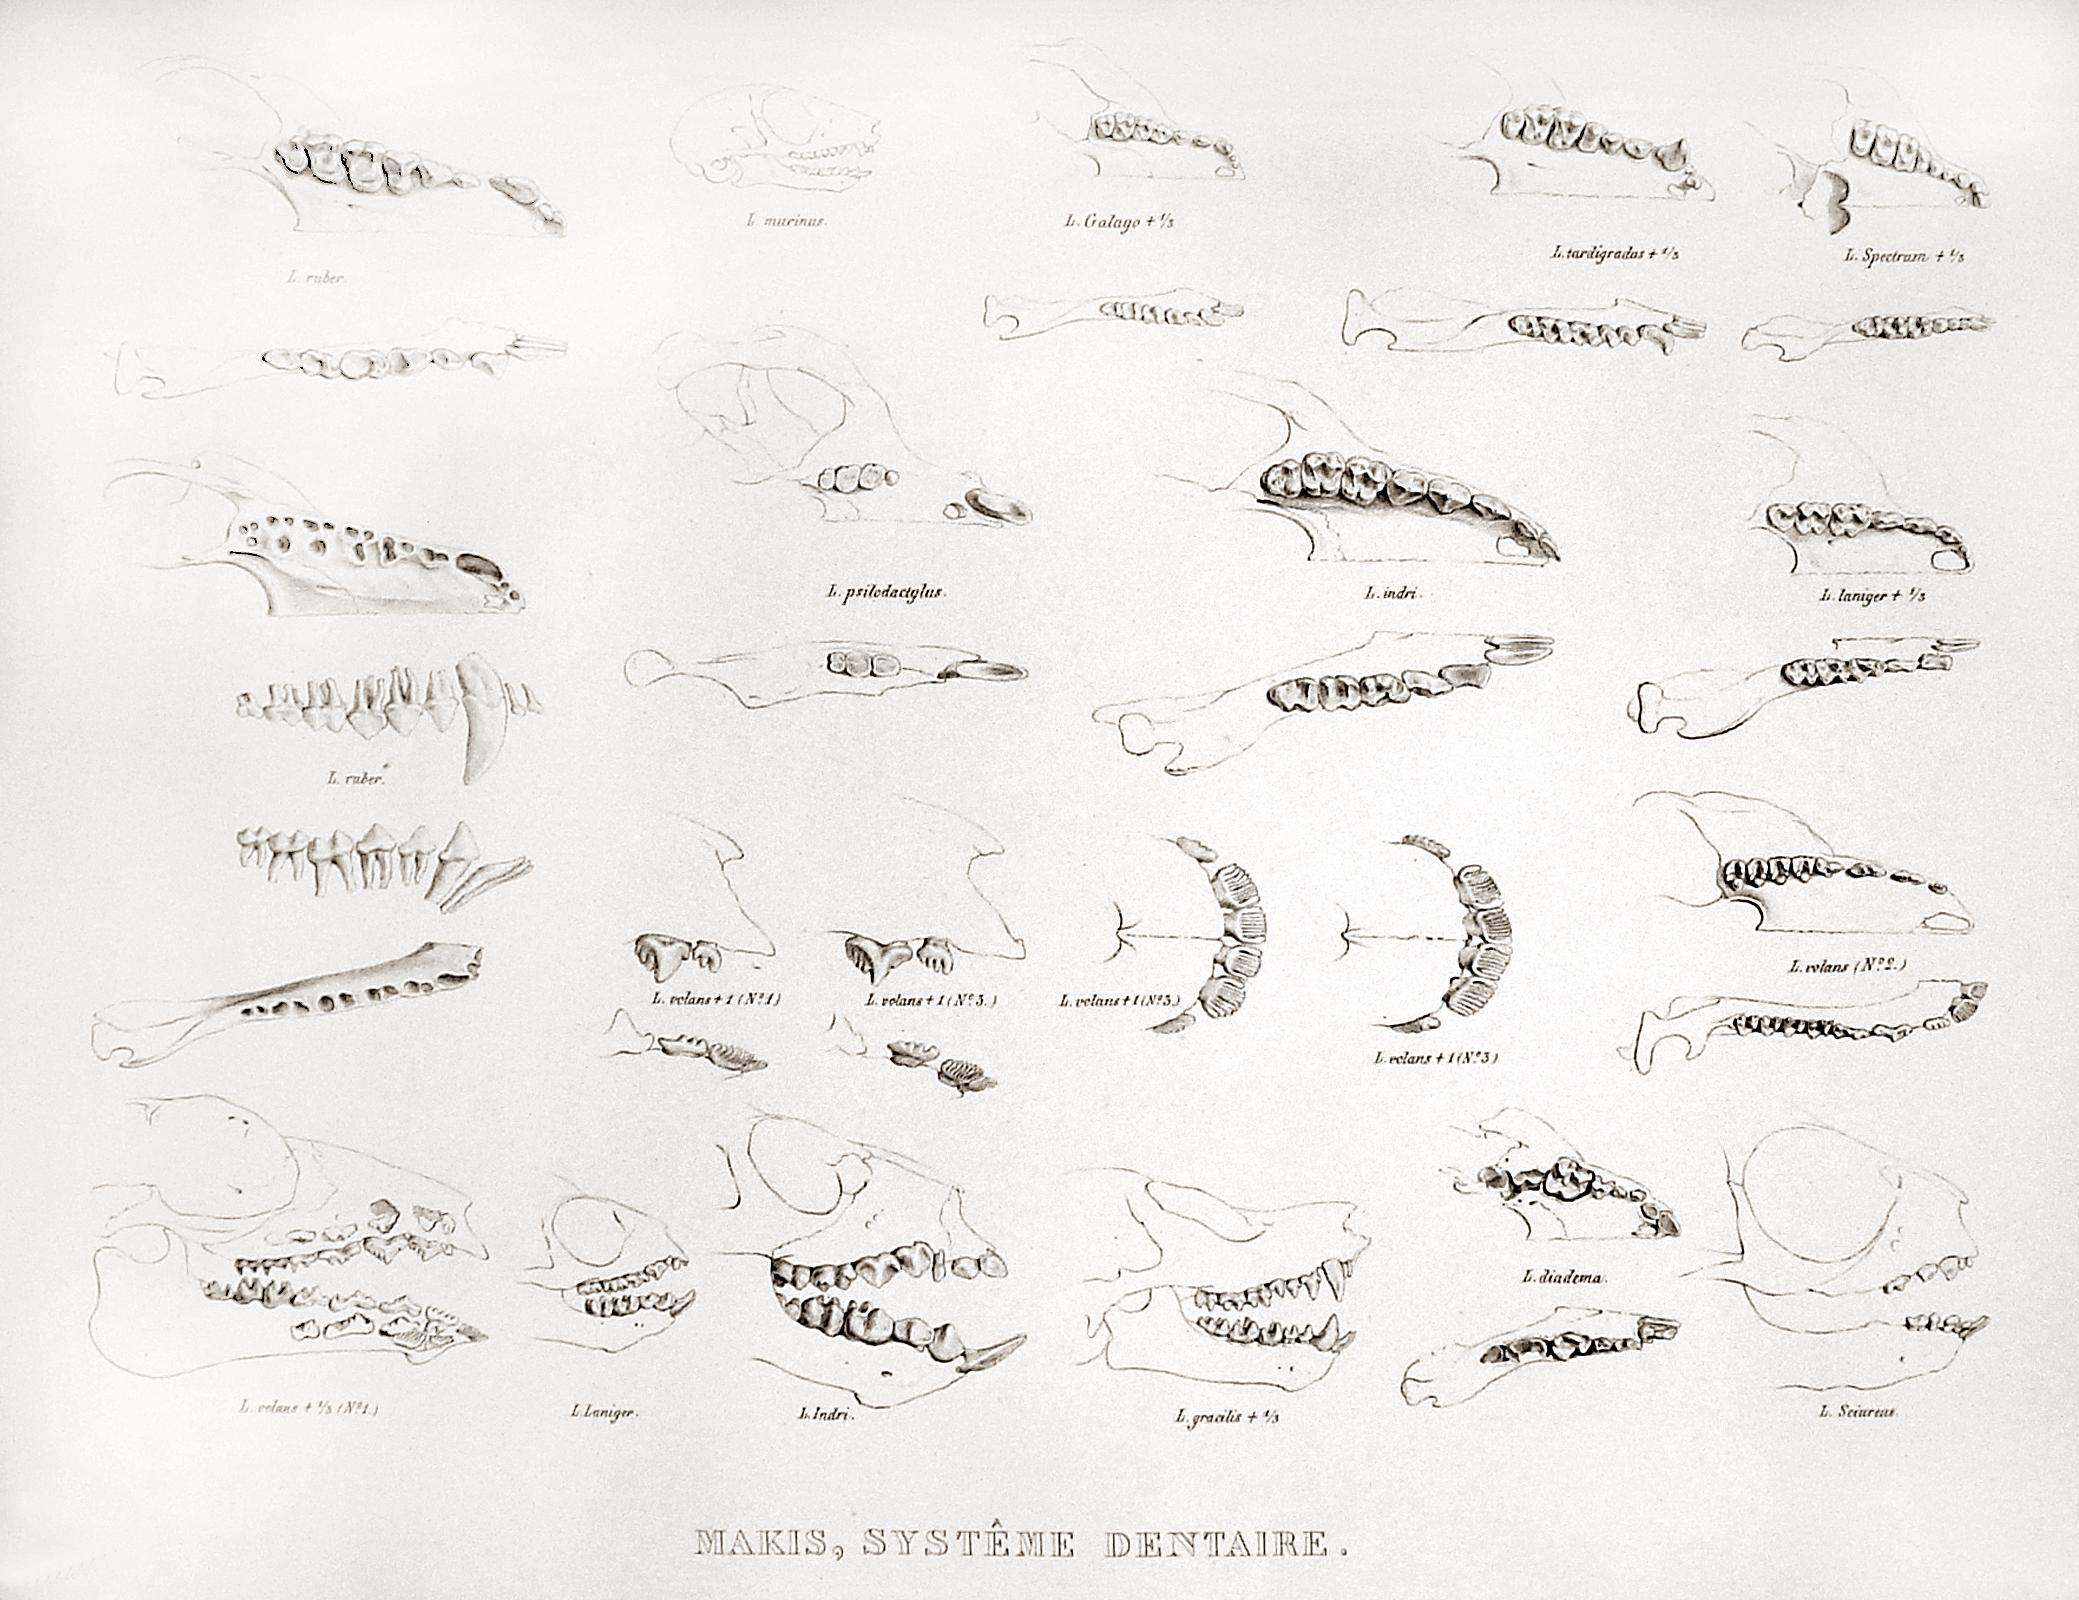 L. murinus.
L. Galago + 1/3
L. tardigradus + 1/3
L. Spectrum + 1/3
L. ruber.
L. psilodactylus.
L. indri.
L. laniger + 1/3
L. ruber.
L. volans (Nº 2.)
L. volans + 1 (Nº 1)
L. volans + 1 (Nº 3.)
L. volans + 1 (Nº 3.)
L. volans + 1 (Nº 3)
L. diadema.
L. volans + 1/3 (Nº 1.)
L. Laniger.
L. Indri.
L. gracilis + 1/3
L. Sciureus.
MAKIS, SYSTÊME DENTAIRE.